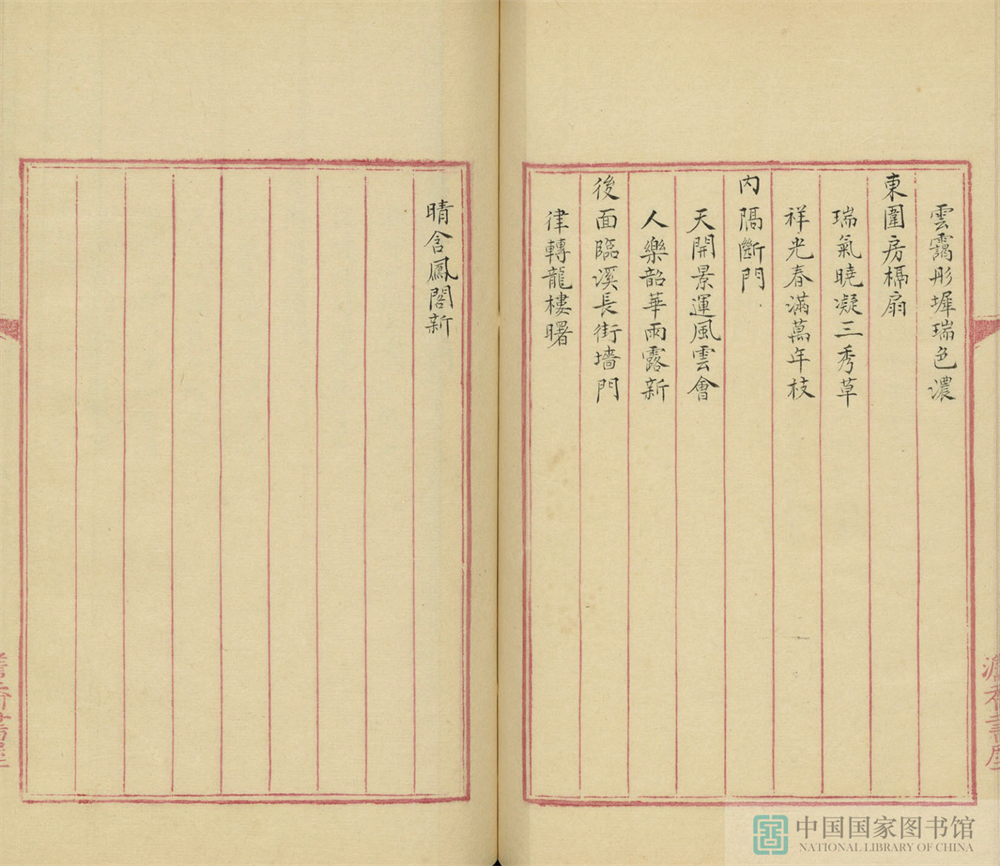 雲靄彤墀瑞色濃
東圍房槅扇
瑞氣曉凝三秀草
祥光春滿萬年枝
內隔斷門
天開景運風雲會
人樂韶華雨露新
後面臨溪長街墻門
律轉龍樓曙
晴含鳳閣新
中国国家图书馆
NATIONAL LIBRARY OF CHINA